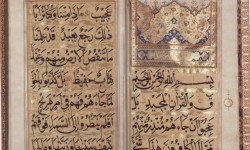 بسم الله الرحمن الرحيم
ق والقرآن المجيد بل
عجبوا أن جاءهم منذر منهم
عجيب أإذا متنا وكنا ترابا
ذلك رجع بعيد قد علمنا
ما تنقص الأرض منهم وعندنا
كتاب حفيظ بل كذبوا بالحق
لما جاءهم فهم في أمر مريج
أفلم ينظروا إلى السماء فوقهم